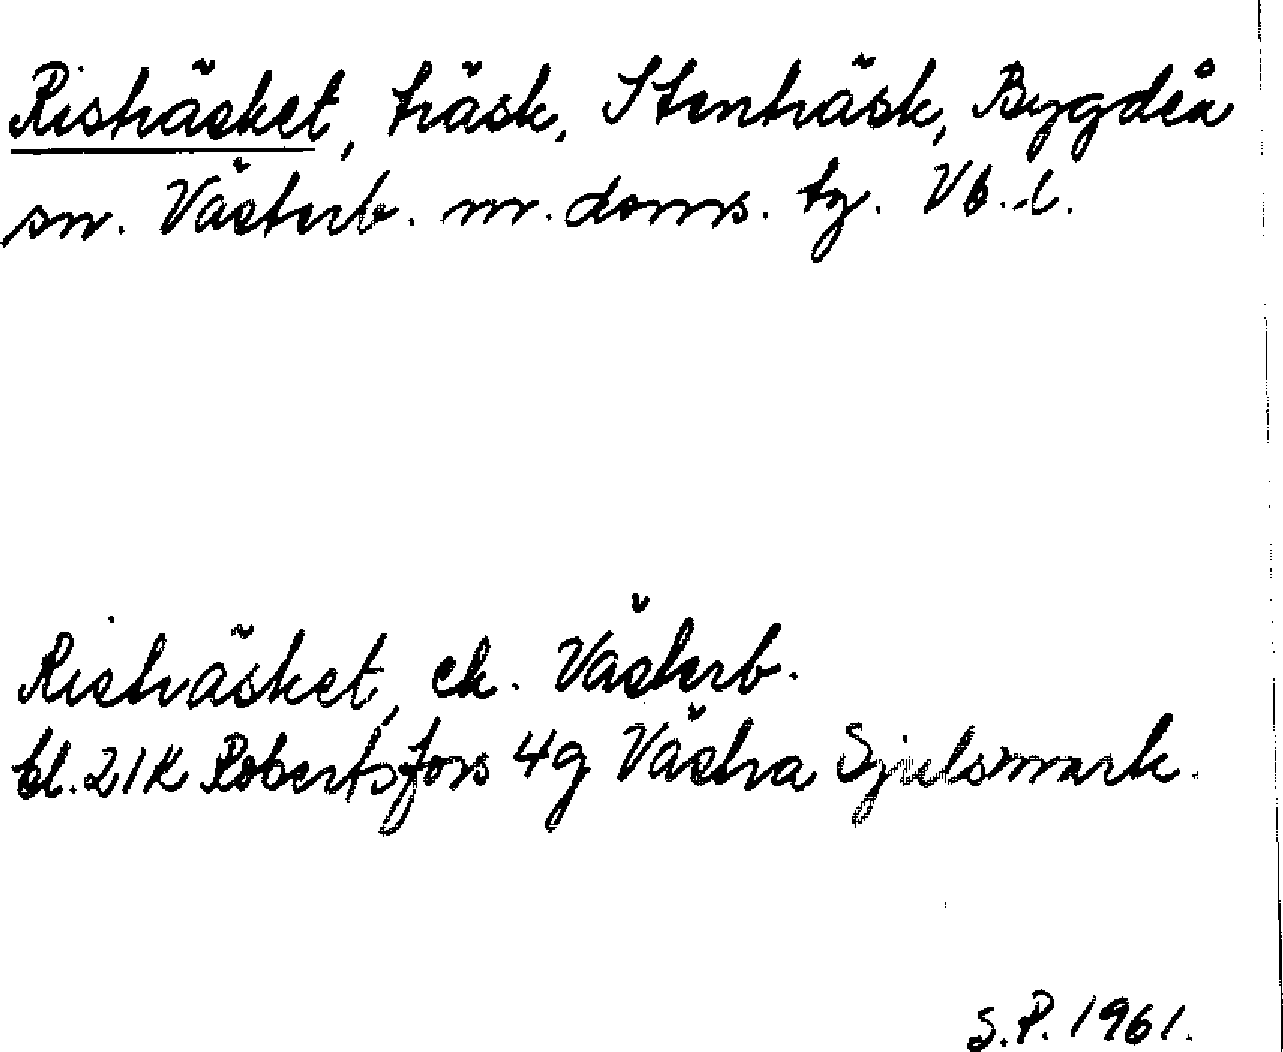 Risträsket, träsk, Stenträsk, Bygdeå
sn. Västerb. nr. doms. tg. Vb. l.
Risträsket, ek. Västerb.
bl. 21K Robertsfors 4g Västra Sjulsmark.
S.P. 1961.